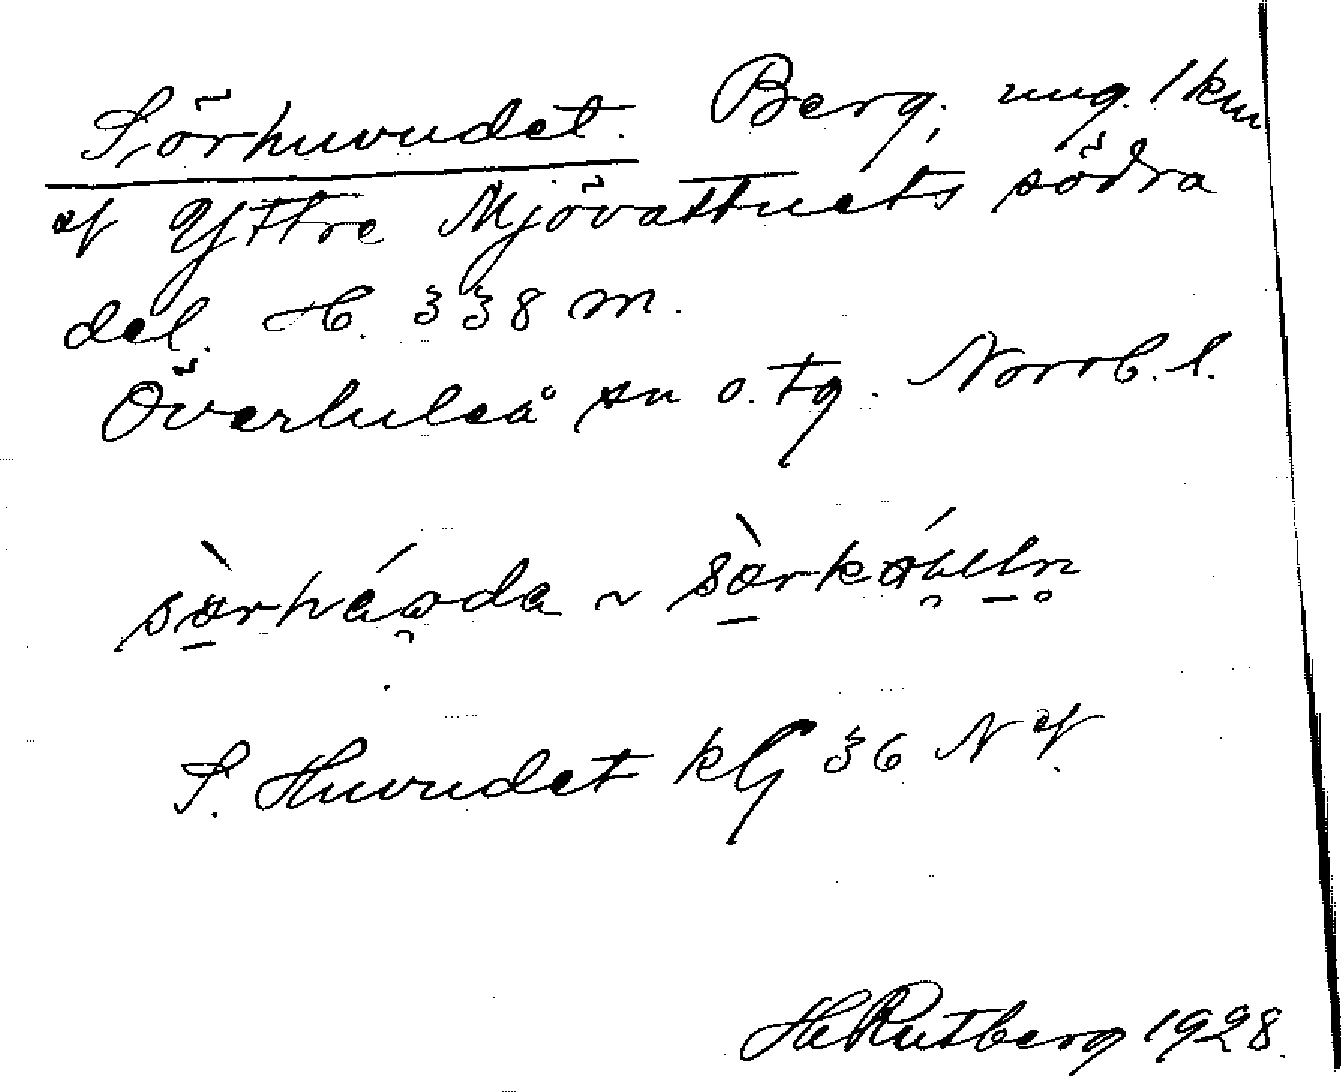 Sörhuvudet. Berg, ung. 1 km
of Yttre Mjövattnets södra
del. H. 338 m.
Överluleå sn o. tg. Norrb. l.
sὸrháoda ~ sὸrkǻbεln
S. Huvudet kG 36 N of
H Rutberg 1928.